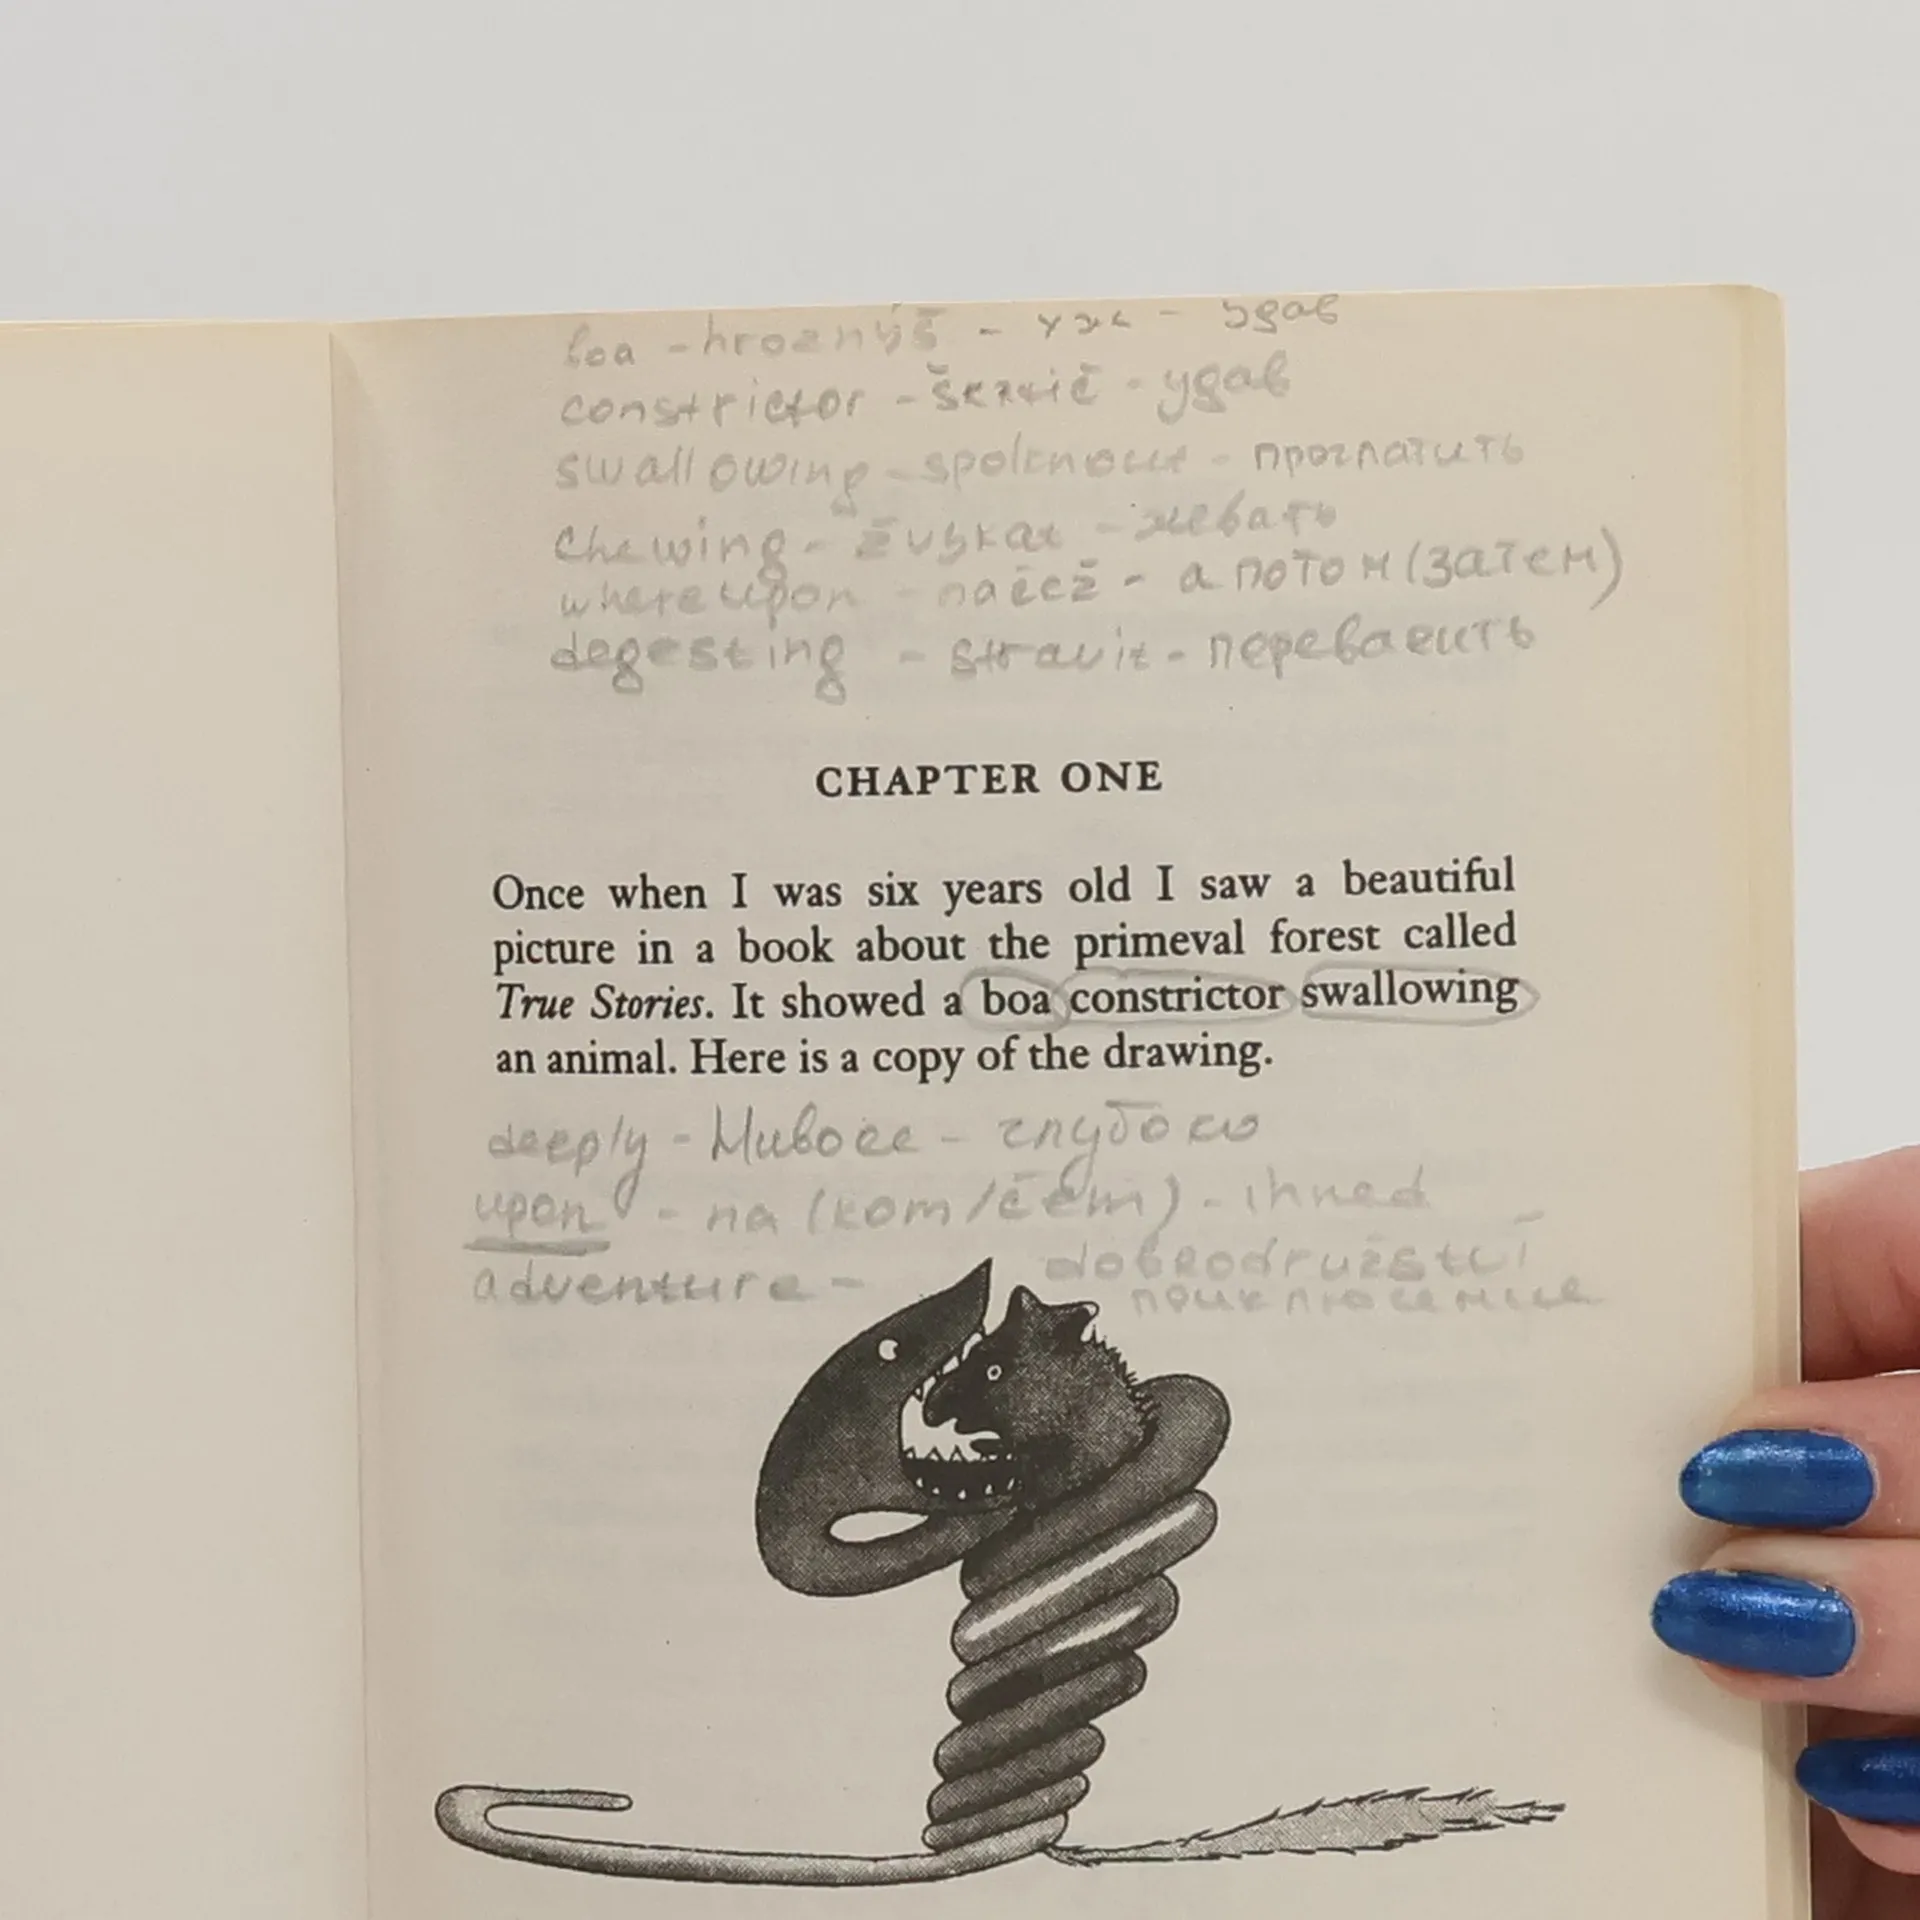 boa - hroznýš - уж - удав
constrictor - škrtič - удав
swallowing - spolknout - проглатить
chewing - žvýkat - жевать
whereupon - načež - а потом (затем)
degesting - stravit - переварить
CHAPTER ONE
Once when I was six years old I saw a beautiful
picture in a book about the primeval forest called
True Stories. It showed a boa constrictor swallowing
an animal. Here is a copy of the drawing.
deeply - hluboce - глубоко
upon - na (kom/čem) - ihned
adventure - dobrodružství
приключение